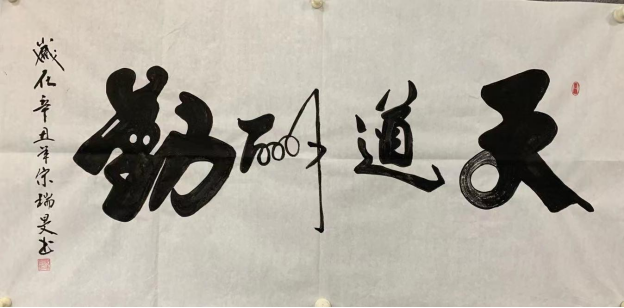 天道酬勤
歲在辛丑年宋瑞旻书